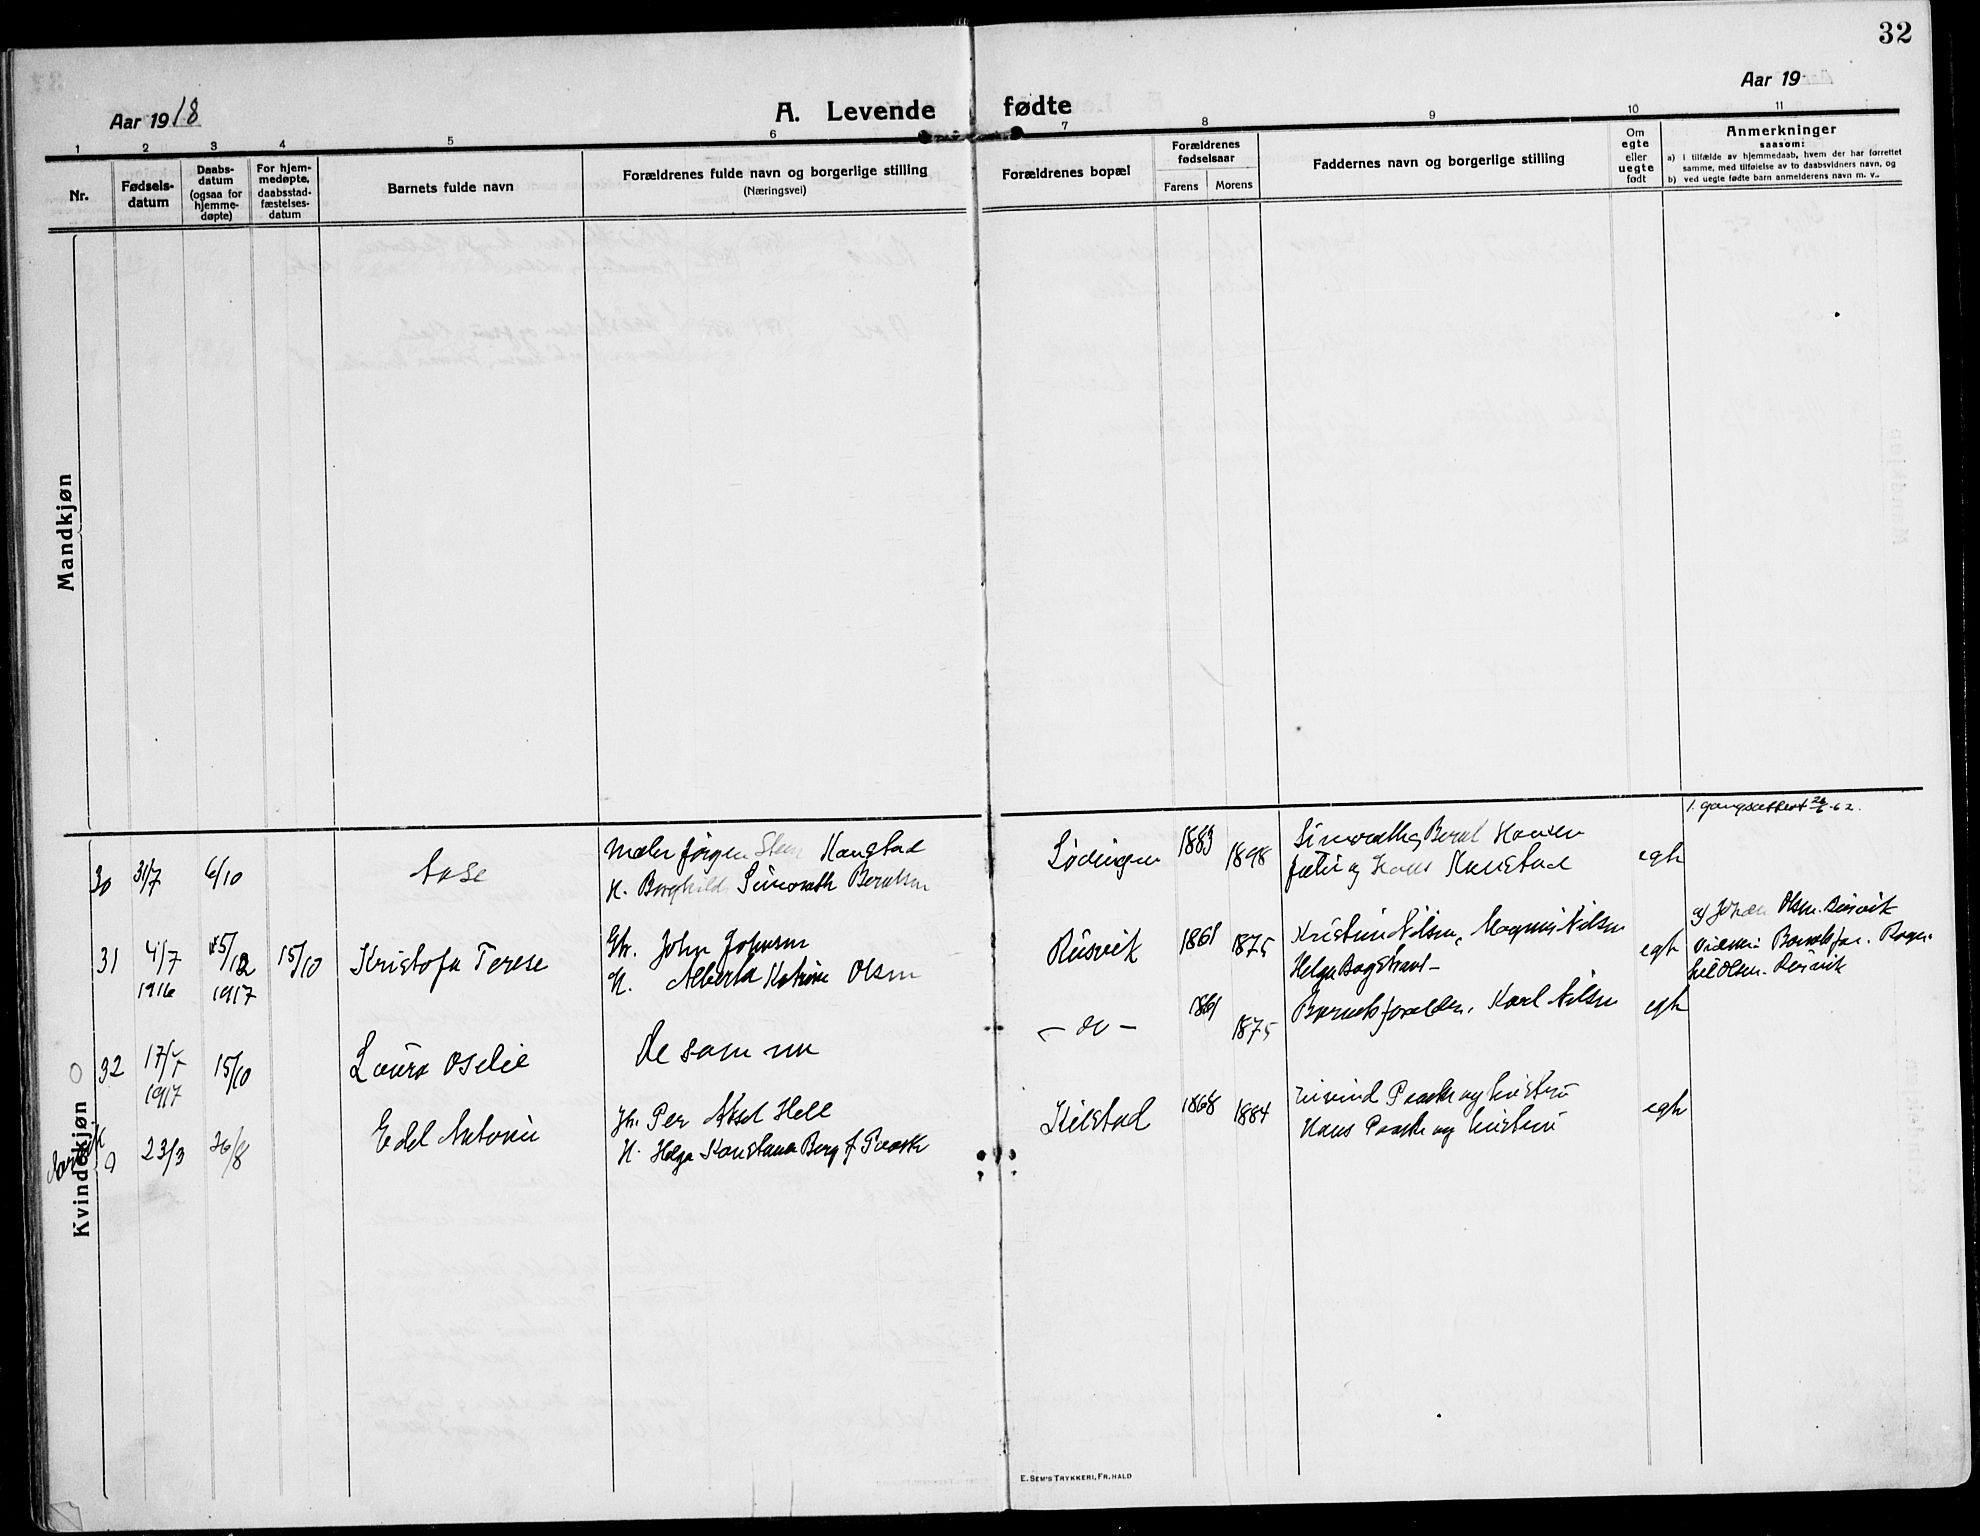 32
Aar 1918
A. Levende fødte
Aar 19
1 2 3 4 5 6 7 8 9 10 11
Nr.
Fødsels-
datum
Daabs-
datum
(ogsaa for
hjemme-
døpte)
For hjem-
medøpte,
daabsstad-
fæstelses-
datum
Barnets fulde navn
Forældrenes fulde navn og borgerlige stilling
(Næringsvei)
Forældrenes bopæl
Forældrenes
fødselsaar
Farens Morens
Faddernes navn og borgerlige stilling
Om
egte
eller
uegte
født
Anmerkninger
saasom:
a) i tilfælde av hjemmedaab, hvem der har forrettet
samme, med tilføielse av to daabsvidners navn, og
b) ved uegte fødte barn anmelderens navn m. v.
Mandkjøn
Kvindekjøn
30 31/7 6/10 Aase
Maler Jørgen Kanstad
H. Borghild Simonette Berntsen
Lødingen 1883 1898
Bernt Hansen
og Hans Kanstad
egte
31 4/7 1916 15/12 1917 15/10 Kristofa Terese
Gbr. John Johnsen
H. Alberta Katrine Olsen
Rusvik 1861 1875
Kristine Nilsen, Magnus Nilsen
Helga
egte
a) Johan Olsen. Rusvik
32 17/7 1917 15/10 Laura Oselie
De samme
— do — 1861 1875
Barnets forældre, Karl Nilsen
egte
0 23/3 26/8 Edel Antonie
Per Aksel Hell
H. Helga Konstanse Berg f. Paaske
Kilstad 1868 1884
Eivind Paaske og hustru
Hans Paaske og hustru
egte
E. SEM'S TRYKKERI, FR.HALD